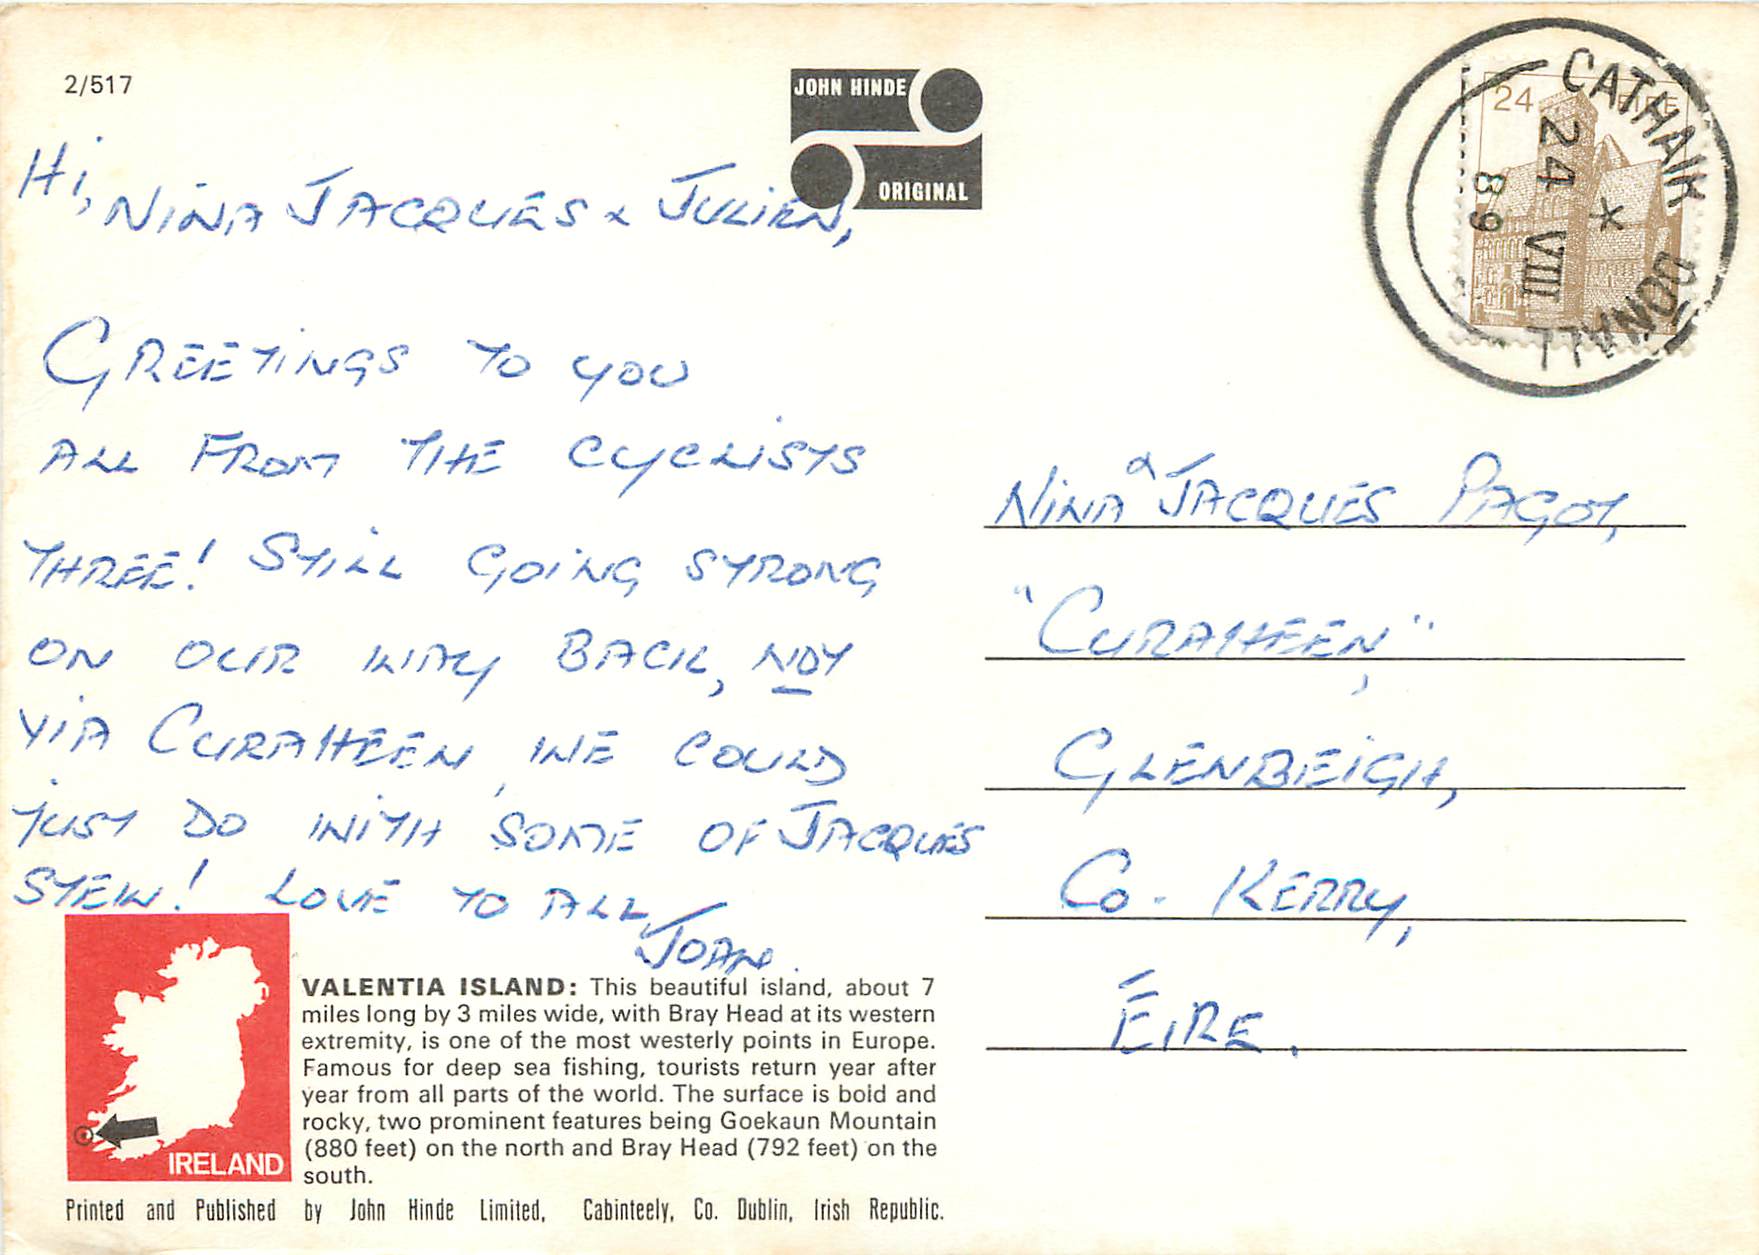 2/517
JOHN HINDE
ORIGINAL
Hi, NINA JACQUES & JULIEN,
GREETINGS TO YOU
ALL FROM THE CYCLISTS
THREE! STILL GOING STRONG
ON OUR WAY BACK, NOT
VIA CURAHEEN, WE COULD
JUST DO WITH SOME OF JACQUES
STEW! LOVE TO ALL,
JOAN.
24 EIRE
CATHAIR DÓNALL
24 VIII
89
NINA & JACQUES PAGOT,
"CURAHEEN",
GLENBEIGH,
CO. KERRY,
ÉIRE.
IRELAND
VALENTIA ISLAND: This beautiful island, about 7
miles long by 3 miles wide, with Bray Head at its western
extremity, is one of the most westerly points in Europe.
Famous for deep sea fishing, tourists return year after
year from all parts of the world. The surface is bold and
rocky, two prominent features being Goekaun Mountain
(880 feet) on the north and Bray Head (792 feet) on the
south.
Printed and Published by John Hinde Limited, Cabinteely, Co. Dublin, Irish Republic.